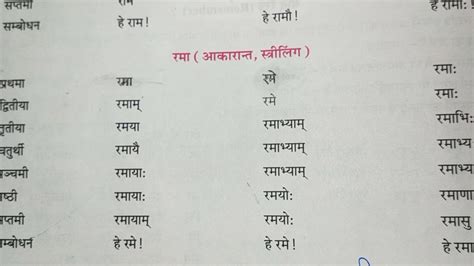 सप्तमी राम
सम्बोधन हे राम! हे रामौ! हे रामाः!
रमा ( आकारान्त, स्त्रीलिंग )
प्रथमा रमा रमे रमाः
द्वितीया रमाम् रमे रमाः
तृतीया रमया रमाभ्याम् रमाभिः
चतुर्थी रमायै रमाभ्याम् रमाभ्य
पञ्चमी रमायाः रमाभ्याम् रमाभ्य
षष्ठी रमायाः रमयोः रमाणा
सप्तमी रमायाम् रमयोः रमासु
सम्बोधन हे रमे! हे रमे! हे रमा